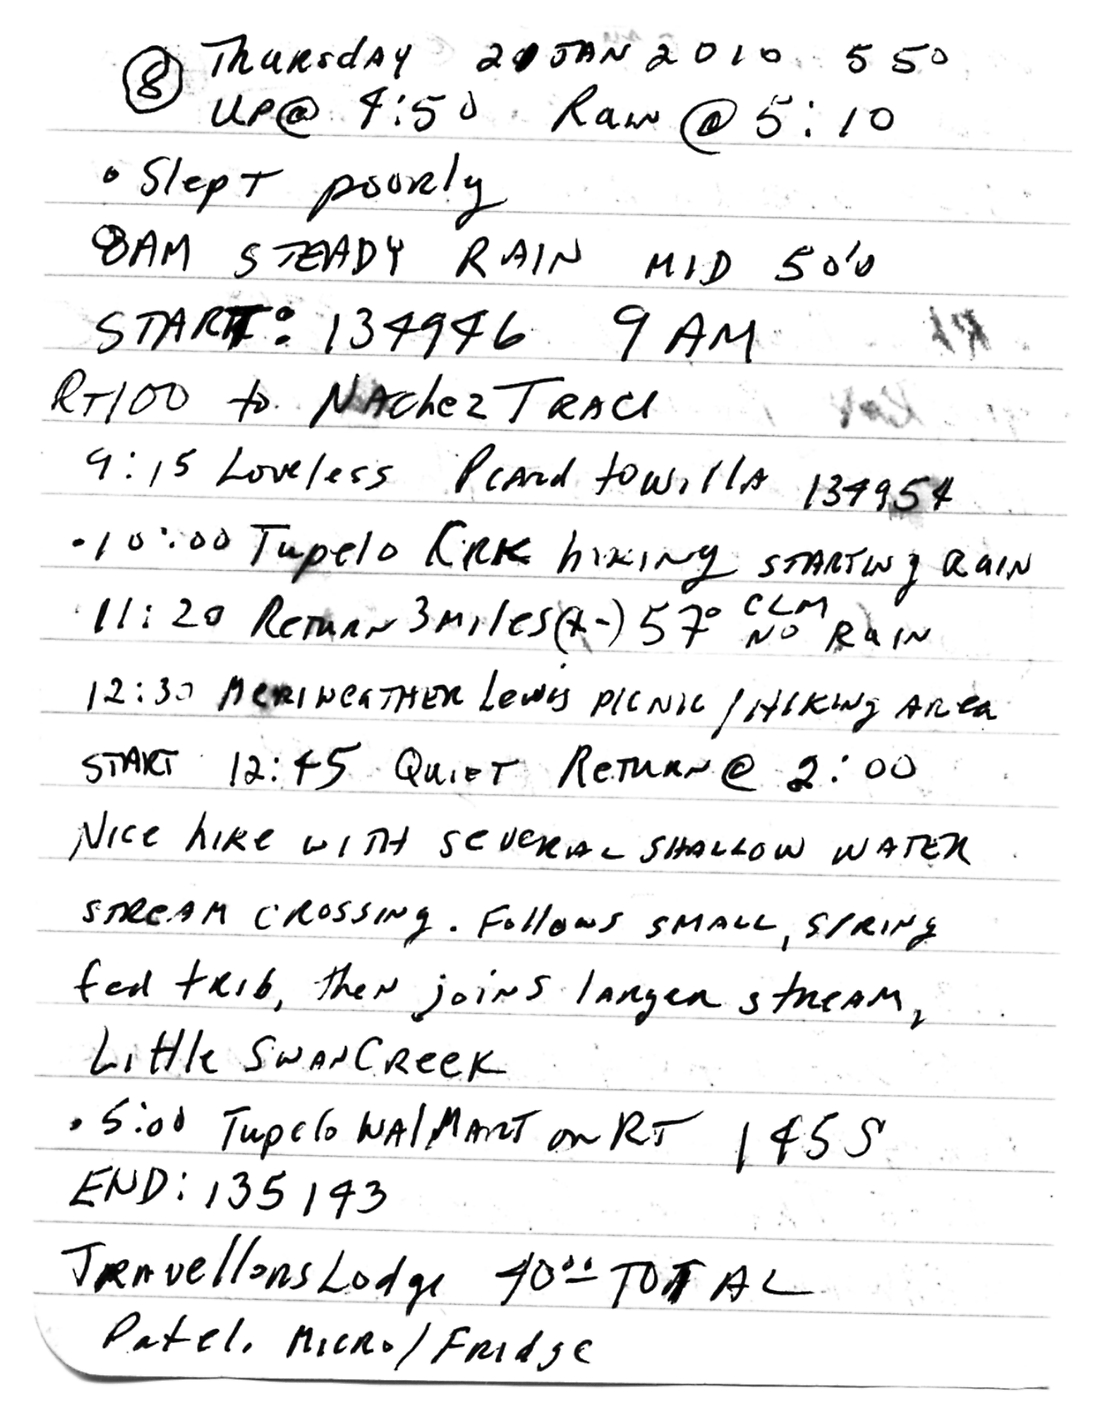 8 Thursday 21 JAN 2010 550
UP@ 4:50 Rain @ 5:10
• Slept poorly
8AM STEADY RAIN MID 50's
START: 134946 9 AM
RT100 to Nachez Trace
9:15 Loveless Pcard to Willa 134954
• 10:00 Tupelo Crk hiking starting rain
• 11:20 Return 3 miles (+-) 57° CLM NO RAIN
12:30 Meriweather Lewis picnic / Hiking Area
START 12:45 Quiet Return @ 2:00
Nice hike with several shallow water
stream crossing. Follows small, spring
fed trib, then joins larger stream,
Little Swan Creek
• 5:00 Tupelo WalMart on RT 145 S
END: 135143
Travellors Lodge 40.00 TOTAL
Patel. Micro/Fridge